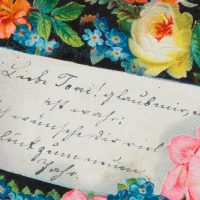 Liebe Toni! glaub mir, e
ist wahr:
ch wünsche dir viel
Glück zum neuen
Jahr.